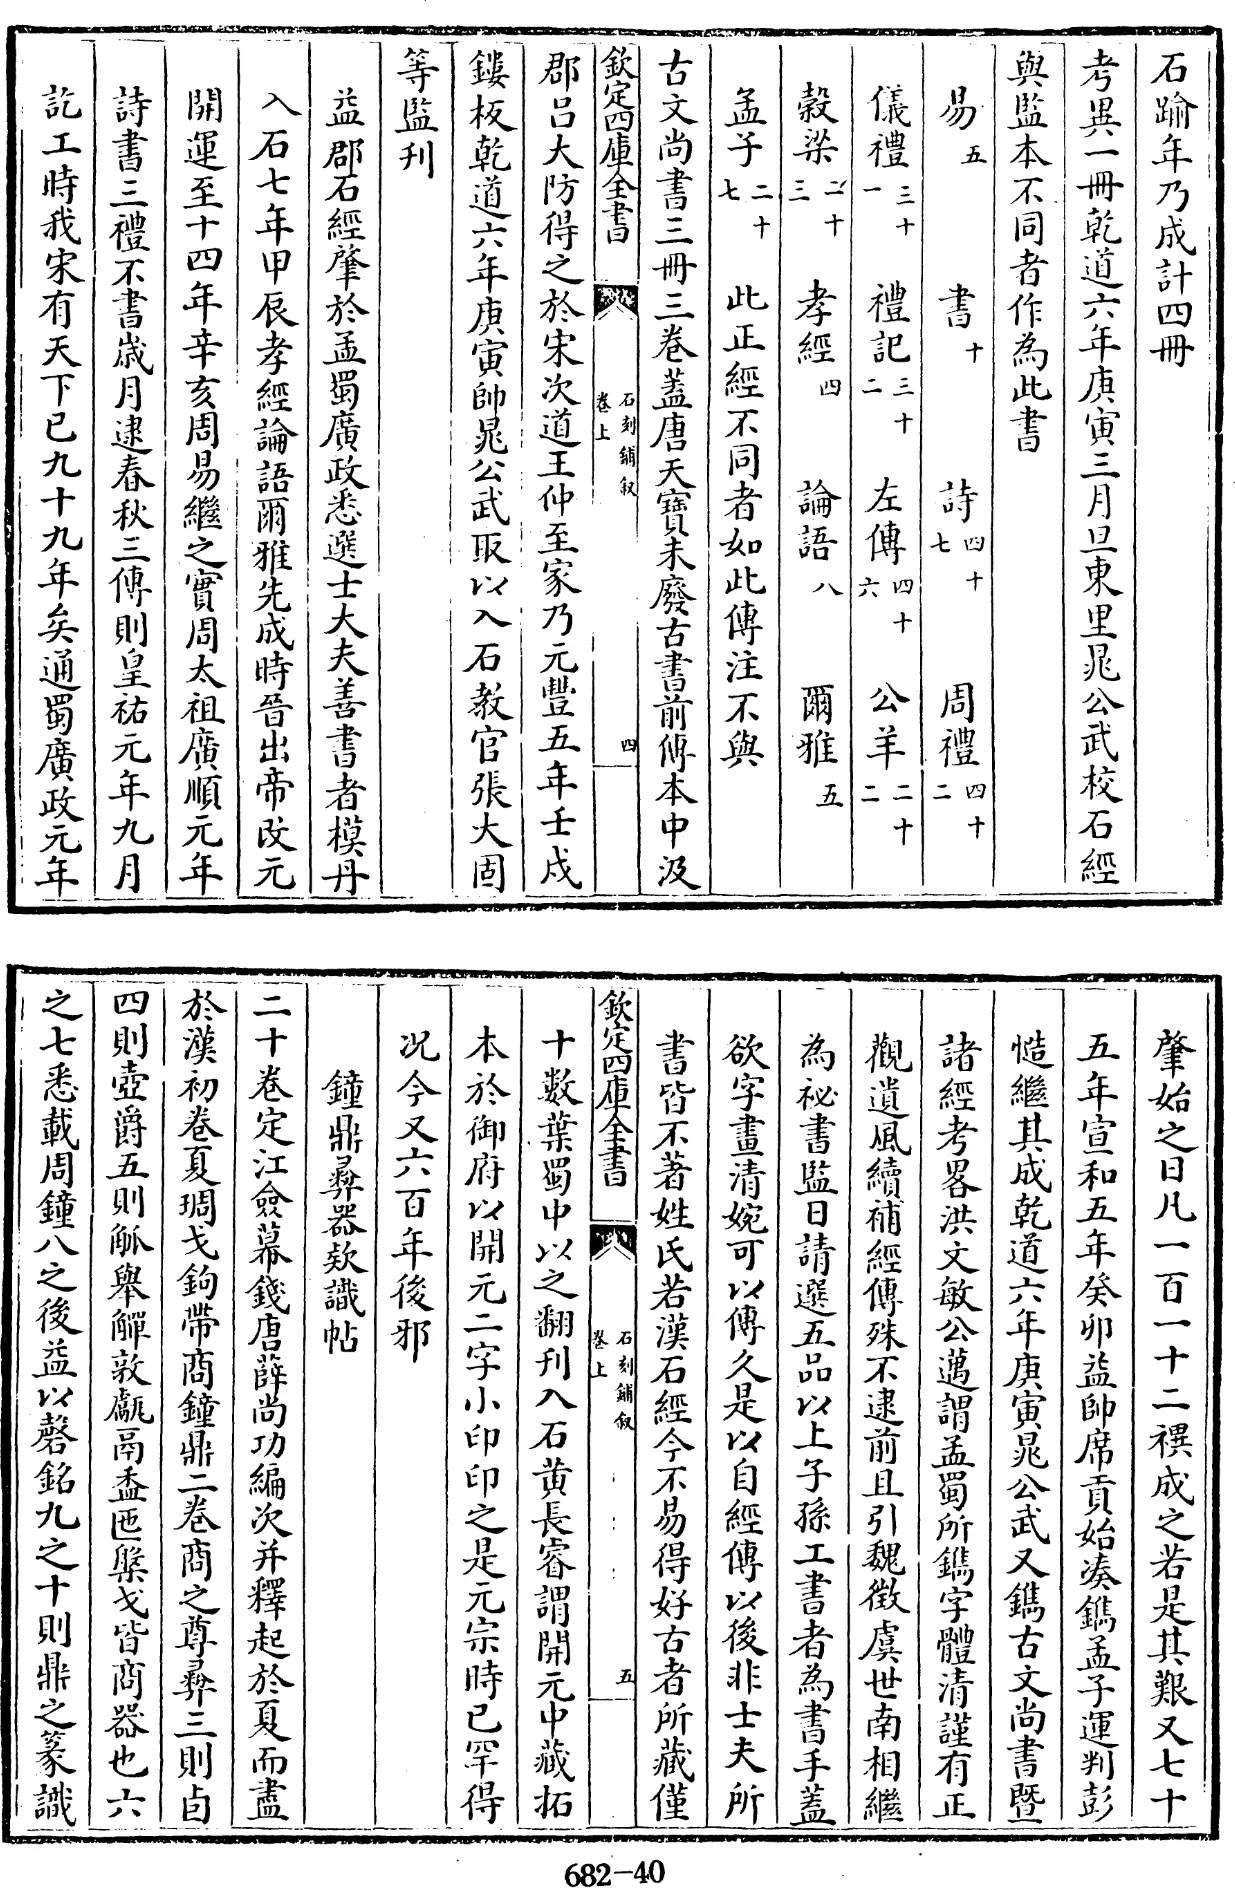 石踰年乃成計四冊
考異一冊乾道六年庚寅三月旦東里晁公武校石經
與監本不同者作為此書
易五 書十 詩四十七 周禮四十二
儀禮三十一 禮記三十二 左傳四十六 公羊二十二
穀梁二十三 孝經四 論語八 爾雅五
孟子二十七 此正經不同者如此傳注不與
古文尚書三冊三卷蓋唐天寶未廢古書前傳本中汲
欽定四庫全書
石刻鋪敘
卷上
四
郡呂大防得之於宋次道王仲至家乃元豐五年壬戌
鏤板乾道六年庚寅帥晁公武取以入石教官張大固
等監刊
益郡石經肇於孟蜀廣政悉選士大夫善書者模丹
入石七年甲辰孝經論語爾雅先成時晉出帝改元
開運至十四年辛亥周易繼之實周太祖廣順元年
詩書三禮不書歲月逮春秋三傳則皇祐元年九月
訖工時我宋有天下已九十九年矣通蜀廣政元年
肇始之日凡一百一十二禩成之若是其艱又七十
五年宣和五年癸卯益帥席貢始湊鐫孟子運判彭
慥繼其成乾道六年庚寅晁公武又鐫古文尚書暨
諸經考畧洪文敏公邁謂孟蜀所鐫字體清謹有正
觀遺風續補經傳殊不逮前且引魏徵虞世南相繼
為祕書監日請選五品以上子孫工書者為書手蓋
欲字畫清婉可以傳久是以自經傳以後非士夫所
書皆不著姓氏若漢石經今不易得好古者所藏僅
欽定四庫全書
石刻鋪敘
卷上
五
十數葉蜀中以之翻刊入石黄長睿謂開元中藏拓
本於御府以開元二字小印印之是元宗時已罕得
况今又六百年後邪
鐘鼎彛器欵識帖
二十卷定江僉幕錢唐薛尚功編次并釋起於夏而盡
於漢初卷夏琱戈鉤帶商鐘鼎二卷商之尊彛三則卣
四則壺爵五則觚舉觶敦甗鬲盉匜槃戈皆商器也六
之七悉載周鐘八之後益以磬銘九之十則鼎之篆識
682-40